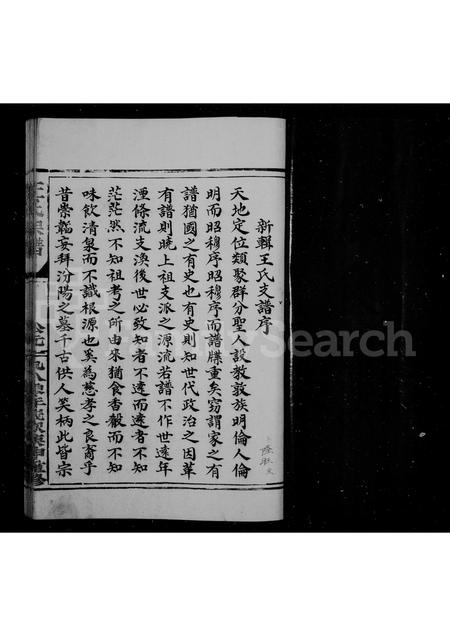 新輯王氏支譜序
天地定位類聚群分聖人設教敦族明倫人倫
明而昭穆序昭穆序而譜牒重矣竊謂家之有
譜猶國之有史也有史則知世代政治之因革
有譜則曉上祖支派之源流若譜不作世遠年
湮條流支渙後世必致知者不遠而遠者不知
茫茫然不知祖考之所由來猶食香穀而不知
味飲清泉而不識根源也奚為慈孝之良裔乎
昔崇韜妄拜汾陽之墓千古供人笑柄此皆宗